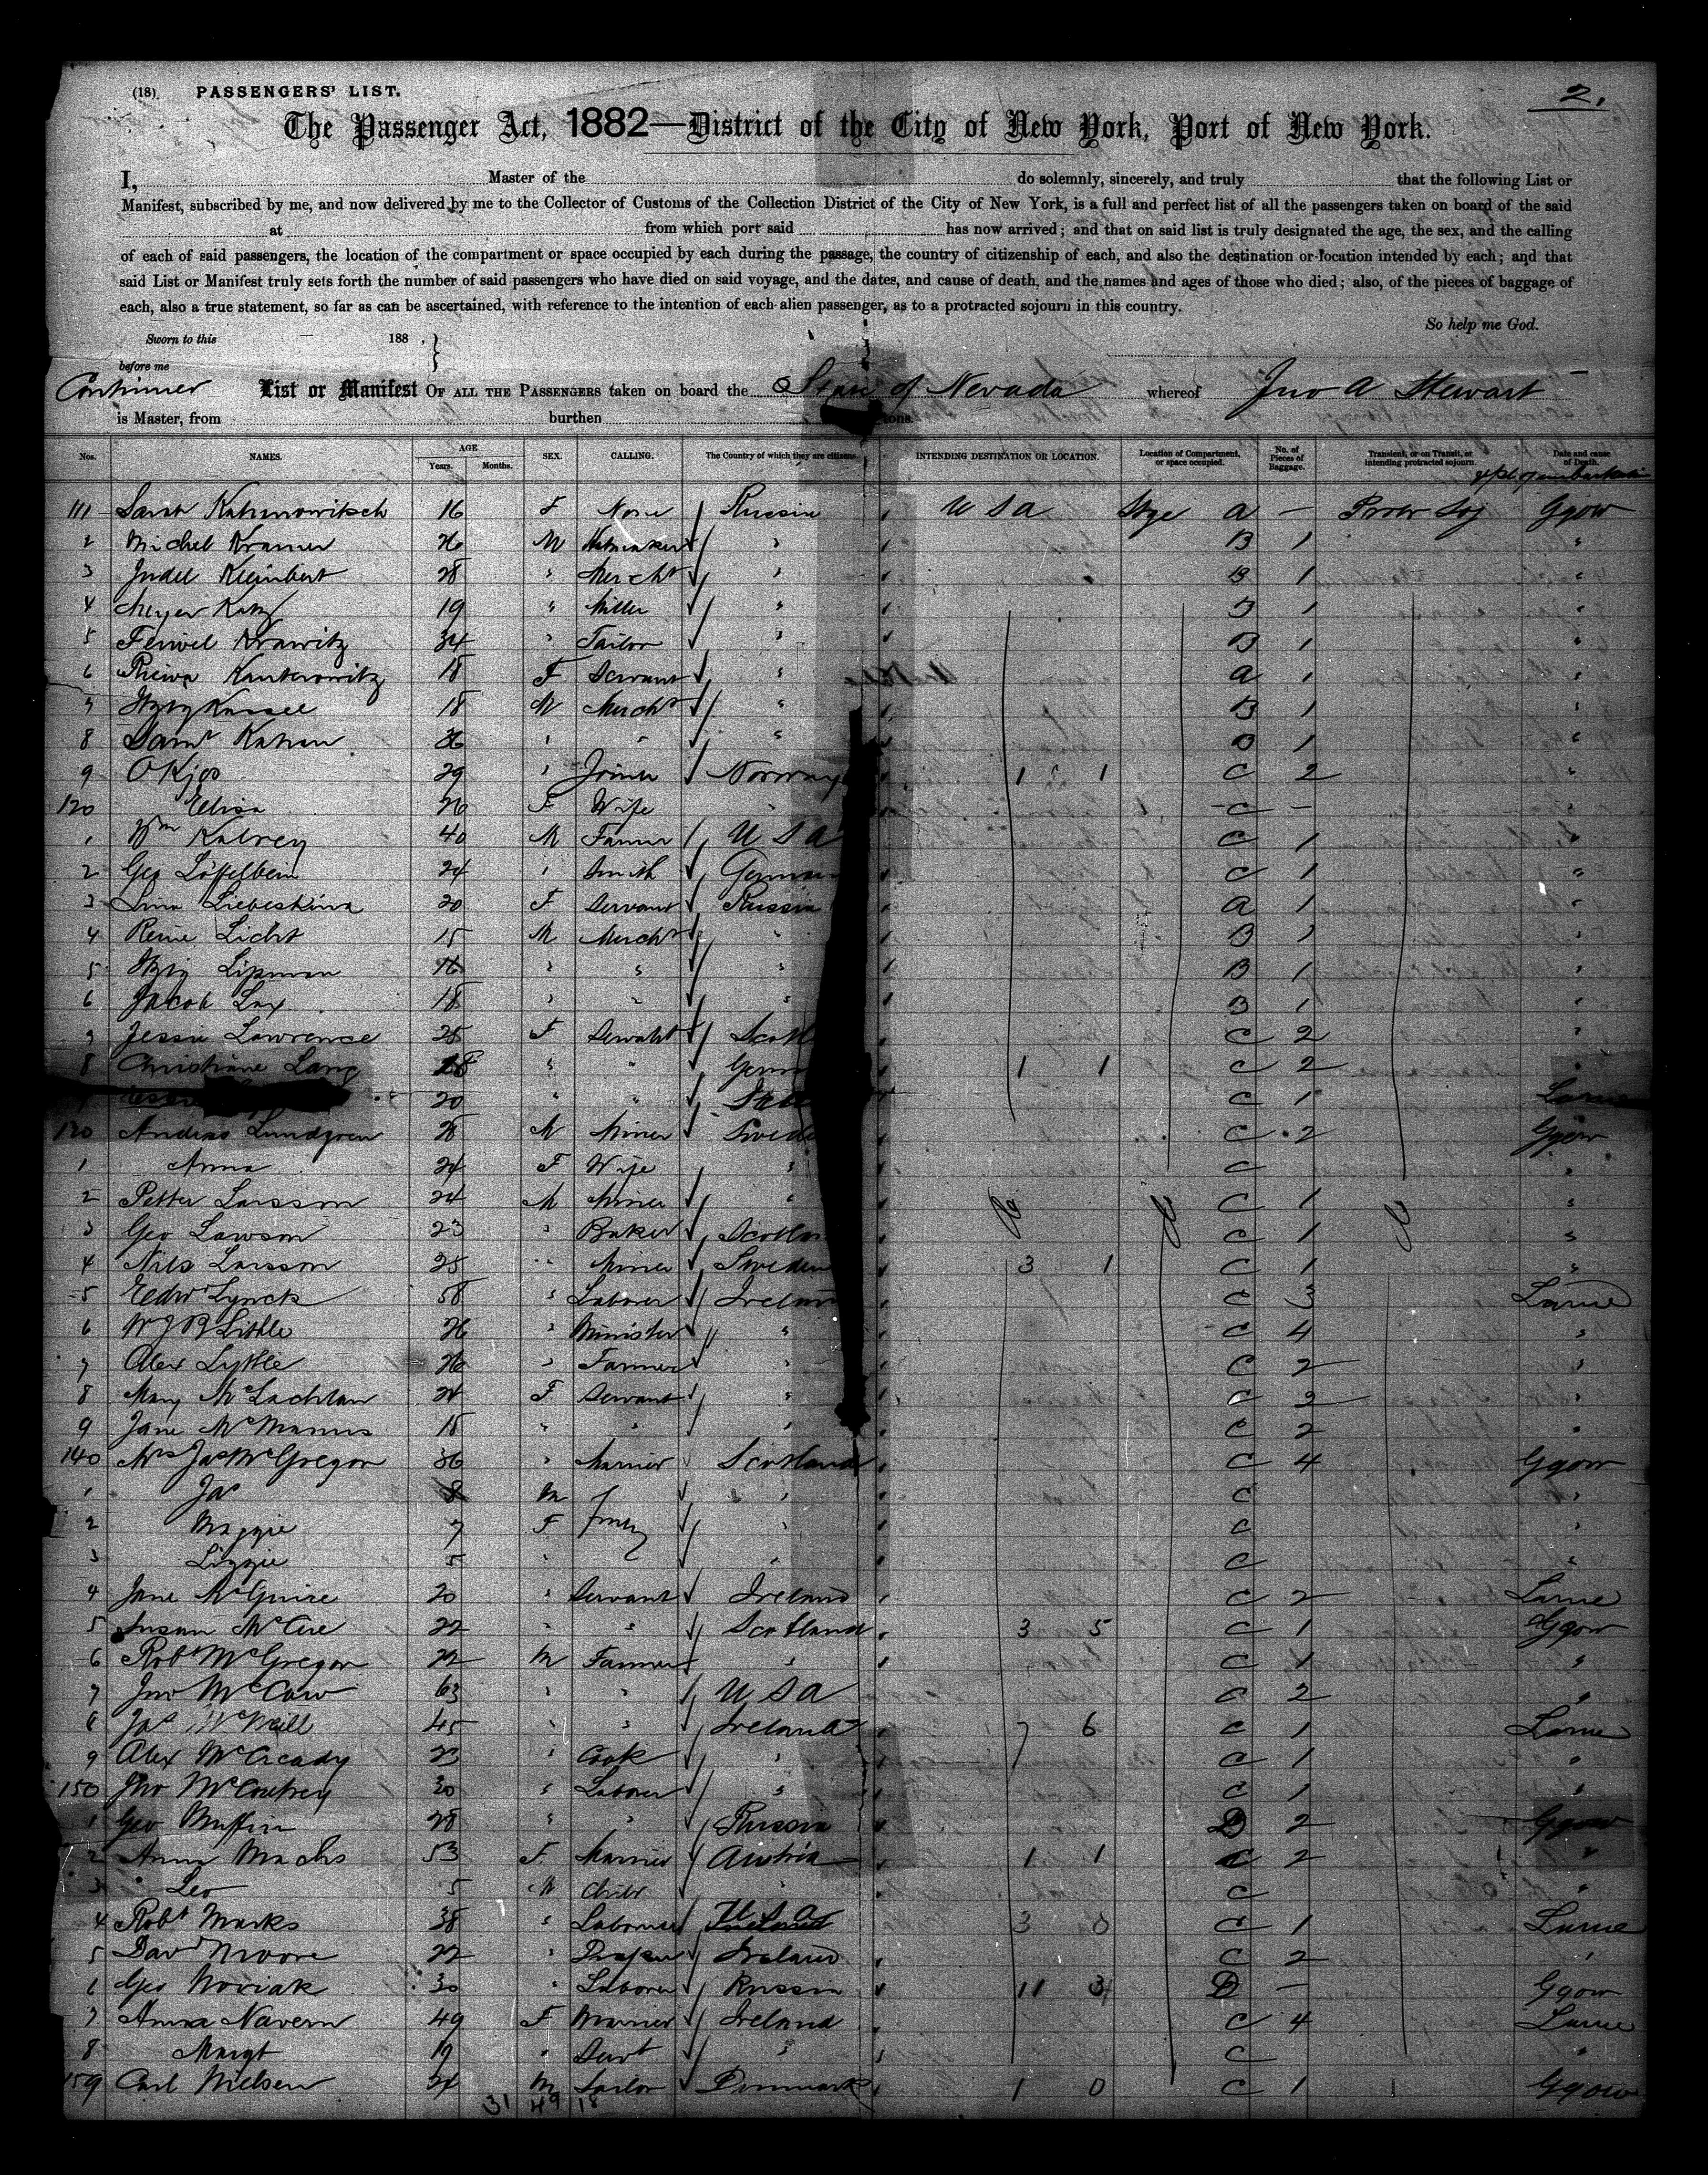 (18) PASSENGERS' LIST. 2.
The Passenger Act, 1882—District of the City of New York, Port of New York.
I, Master of the do solemnly, sincerely, and truly that the following List or
Manifest, subscribed by me, and now delivered by me to the Collector of Customs of the Collection District of the City of New York, is a full and perfect list of all the passengers taken on board of the said
at from which port said has now arrived; and that on said list is truly designated the age, the sex, and the calling
of each of said passengers, the location of the compartment or space occupied by each during the passage, the country of citizenship of each, and also the destination or location intended by each; and that
said List or Manifest truly sets forth the number of said passengers who have died on said voyage, and the dates, and cause of death, and the names and ages of those who died; also, of the pieces of baggage of
each, also a true statement, so far as can be ascertained, with reference to the intention of each alien passenger, as to a protracted sojourn in this country.
So help me God.
Sworn to this 188 ,
before me
List or Manifest OF ALL THE PASSENGERS taken on board the State of Nevada whereof Jno A Stewart
is Master, from burthen tons.
Nos. NAMES. AGE Years. Months. SEX. CALLING. The Country of which they are citizens. INTENDING DESTINATION OR LOCATION. Location of Compartment, or space occupied. No. of Pieces of Baggage. Transient, or on Transit, or intending protracted sojourn. Date and cause of Death.
111 Sarah 16 F None Russia U S A Stge A — Ggow
2 Michel Kramer 26 M " B 1 "
3 Judel 28 " Mercht " B 1 "
4 Meyer Katz 19 " Miller " B 1 "
5 Feiwel Krawitz 34 " Tailor " B 1 "
6 Kanterowitz 18 F Servant " A 1 "
7 18 M Mercht " B 1 "
8 Saml 36 " " " B 1 "
9 O Kjos 29 " Joiner Norway 1 1 C 2 "
120 Elisa 26 F Wife " C — "
1 Wm 40 M Farmer U S A C 1 "
2 Geo Löffelbein 24 " Smith German C 1 "
3 20 F Servant Russia A 1 "
4 Licht 15 M Mercht " B 1 "
5 Lipman 16 " " " B 1 "
6 Jacob 18 " " " B 1 "
7 Jessie Lawrence 25 F Servant Scotl C 2 "
8 Christiane Lang 18 " " Germ 1 1 C 2 "
20 " " C 1 Larne
130 Anders Lundgren 28 M Miner Swede C 2 Ggow
1 Anna 24 F Wife " C "
2 Petter Larsson 24 M Miner " C 1 "
3 Geo Lawson 23 " Baker Scotlan C 1 "
4 Nils Larsson 25 " Miner Sweden 3 1 C 1 "
5 Edwd Lynch 58 " Laborer Ireland C 3 Larne
6 W J B Little 26 " Minister " C 4 "
7 Alex Lyttle 26 " Farmer " C 2 "
8 Mary McLachlan 24 F Servant " C 2 "
9 Jane McManus 18 " " " C 2 "
140 Mrs Jas McGregor 36 " Married Scotland C 4 Ggow
1 Jas 8 M " C "
2 Maggie 7 F " C "
3 Lizzie 5 " " C "
4 Jane McGuire 20 " Servant Ireland C 2 Larne
5 Susan 22 " " Scotland 3 5 C 1 Ggow
6 Robt McGregor 22 M Farmer " C 1 "
7 Jno McCaw 63 " " U S A C 2 "
8 Jas McNeill 45 " " Ireland 7 6 C 1 Larne
9 Alex McCready 23 " Cook " C 1 "
150 Jno 30 " Laborer " C 1 "
1 Geo 28 " " Russia D 2 Ggow
2 Anna Machs 53 F Married Austria 1 1 C 2 "
3 Leo 5 M Child " C "
4 Robt Marks 38 " Laborer U S A 3 0 C 1 Larne
5 Davd Moore 22 " Draper Ireland C 2 "
6 Geo Noviak 30 " Laborer Russia 11 3 D — Ggow
7 Anna Navern 49 F Married Ireland C 4 Larne
8 Margt 19 " Servt " C "
159 Carl Nielsen 24 M Sailor Denmark 1 0 C 1 Ggow
31 49 18